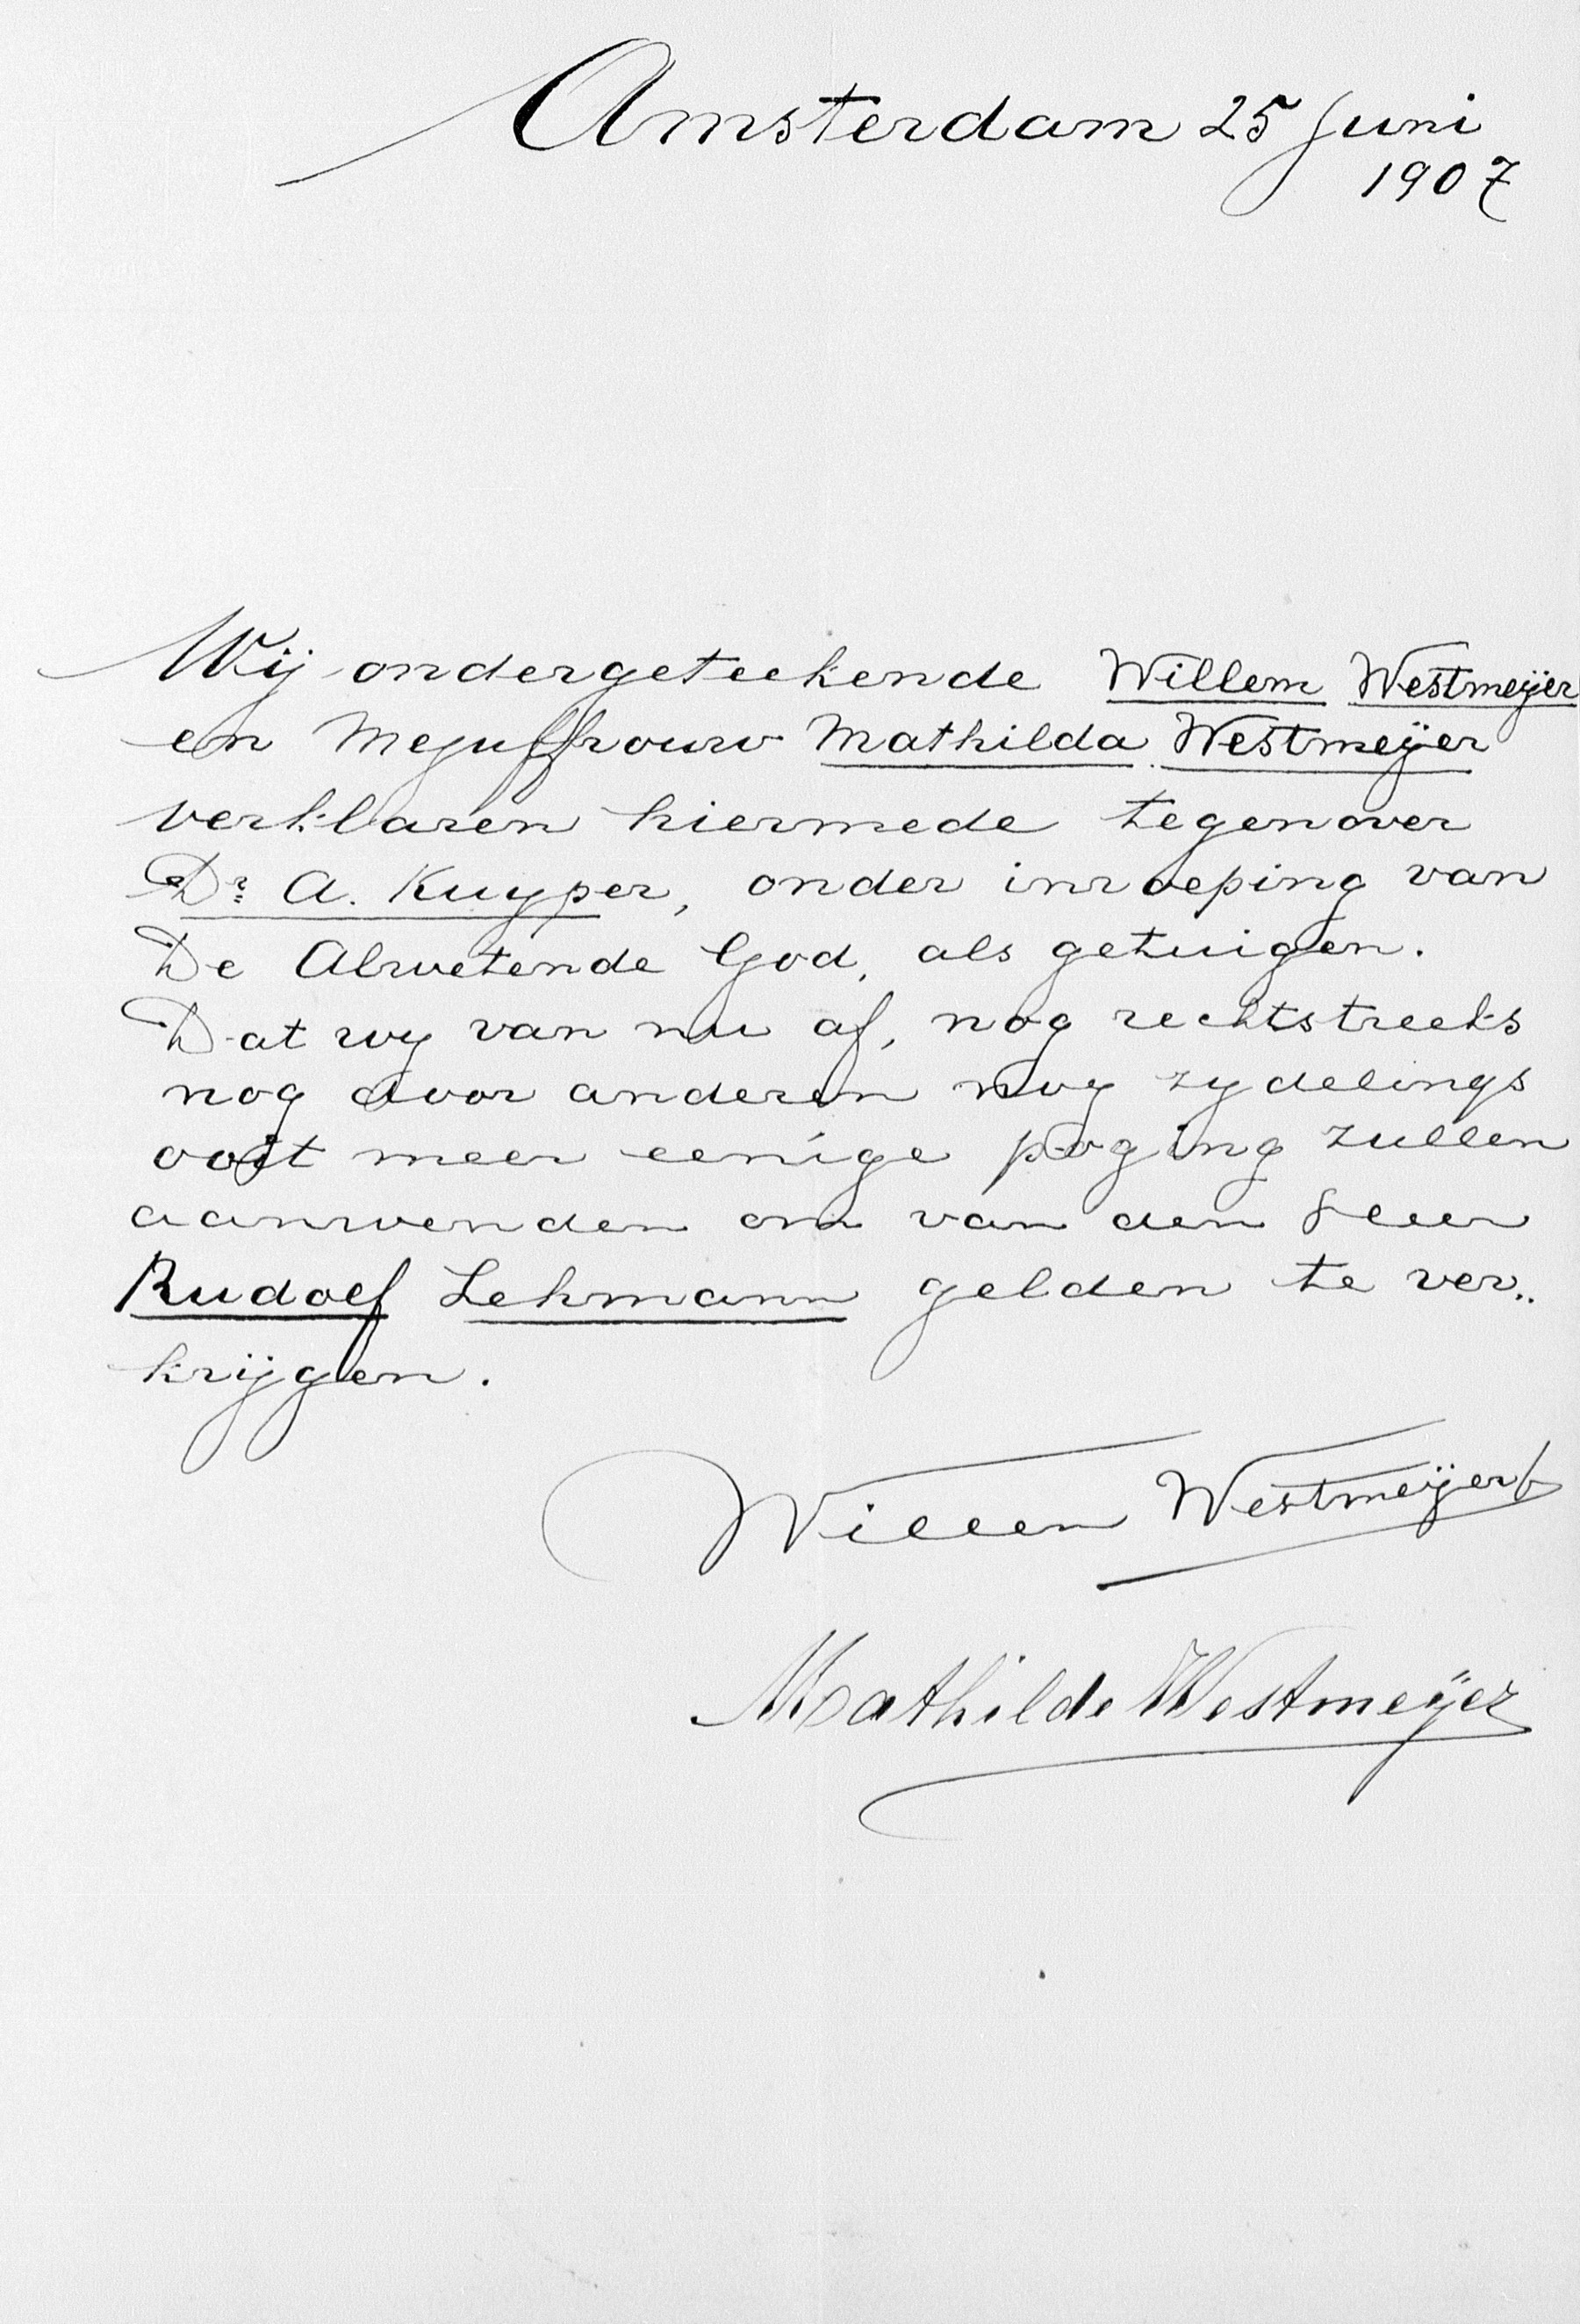 Amsterdam 25 Juni
1907
Wij ondergeteekende Willem Westmeÿer
en Mejuffrouw Mathilda Westmeÿer
verklaren hiermede tegenover
Dr. A. Kuyper, onder inroeping van
De Alwetende God, als getuigen.
Dat wy van nu af, nog rechtstreeks
nog door anderen nog zydelings
ooit meer eenige poging zullen
aanwenden om van den Heer
Rudolf Lehmann gelden te ver..
krijgen.
Willem Westmeÿer
Mathilde Westmeÿer